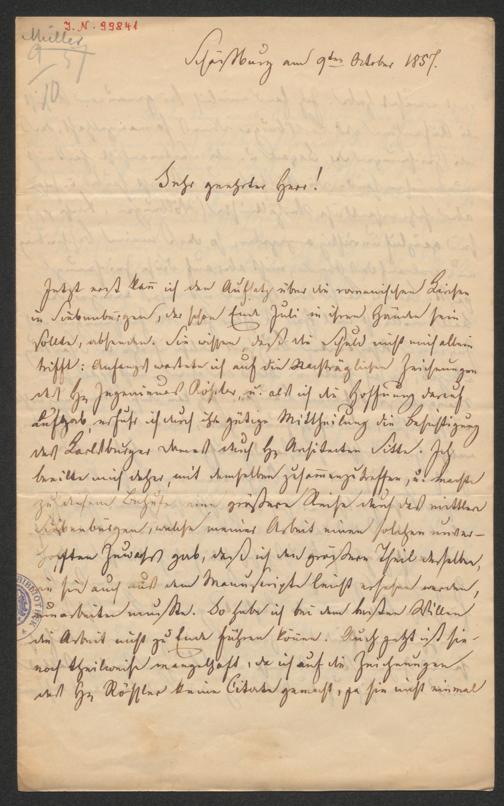 J. N. 99841
Müller
9/10 57
Schäßburg am 9ten October 1857.
Sehr geehrter Herr!
Jetzt erst kann ich den Aufsatz über die romanischen Kirchen
in Siebenbürgen, der schon Ende Juli in Ihren Händen sein
sollte, absenden. Sie wissen, daß die Schuld nicht mich allein
trifft: Anfangs wartete ich auf die Nachträglichen Zeichnungen
des H. Ingenieurs Röhsler, u. als ich die Hoffnung darauf
aufgab, erfuhr ich durch Ihre gütige Mittheilung die Besichtigung
des Karlsburger Domes durch H. Architecten Sitte. Ich
beeilte mich daher, mit demselben zusammenzutreffen, u. machte
zu diesem Behufe eine größere Reise durch das mittlere
Siebenbürgen, welche meiner Arbeit einen solchen unver-
hofften Zuwachs gab, daß ich den größern Theil derselben,
wie Sie auch aus dem Manuscripte leicht ersehen werden,
umarbeiten mußte. So habe ich bei dem besten Willen
die Arbeit nicht zu Ende führen können. Auch jetzt ist sie
noch theilweise mangelhaft, da ich auf die Zeichnungen
des H. Röhsler keine Citate gemacht, ja sie nicht einmal
BIBLIOTHEK